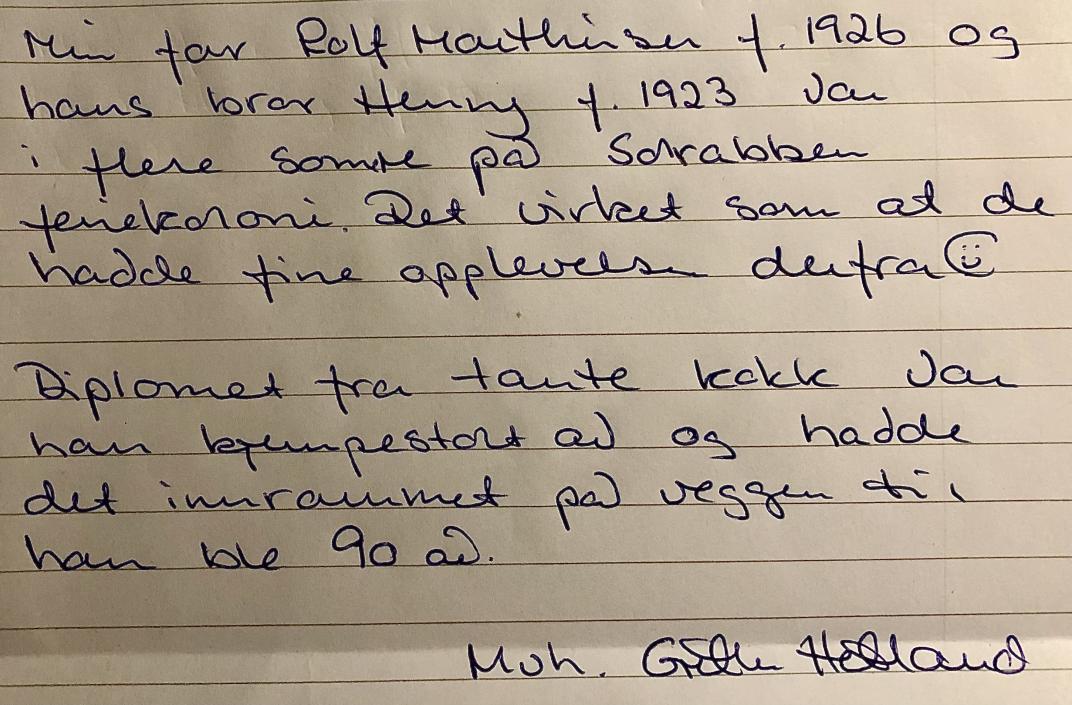 Min far Rolf Mathisen f. 1926 og
hans bror Henny f. 1923 var
i flere somre på Skrabben
feriekoloni. Det virket som at de
hadde fine opplevelser derfra
Diplomet fra tante kakk var
han kjempestolt av og hadde
det innrammet på veggen til
han ble 90 år.
Mvh. Hølland